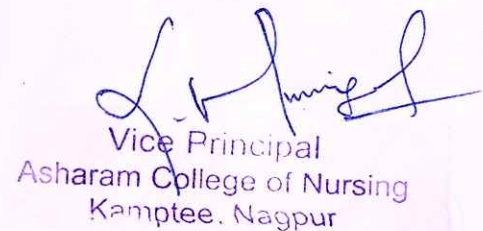 Vice Principal
Asharam College of Nursing
Kamptee. Nagpur